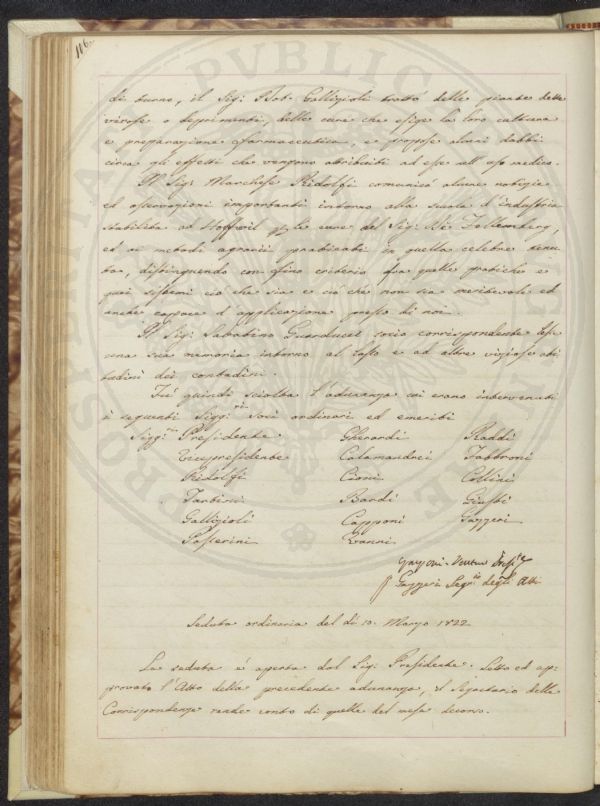 106.
di turno, il Sig: Dot. Gallizioli trattò delle piante dette
virose o deprimenti, delle cure che esige la loro cultura
e preparazione farmaceutica, e propose alcuni dubbi
circa gli effetti che vengono attribuiti ad esse nell' uso medico.
Il Sig: Marchese Ridolfi comunicò alcune notizie
ed osservazioni importanti intorno alla scuola d'Industria
stabilita ad Hoffwil le cure del Sig: De Fellemberg,
ed ai metodi agrari praticati in quella celebre tenu
ta, distinguendo con fino criterio fra quelle pratiche e
quei sistemi ciò che sia e ciò che non sia meritevole ed
anche capace d'applicazione presso di noi.
Il Sig: Sabatino Guarducci socio corrispondente lesse
una sua memoria intorno al lusso e ad altre viziose abi
tudini dei contadini.
Fu quindi sciolta l'adunanza cui erano intervenuti
i seguenti Sigg:ri Soci ordinari ed emeriti
Sigg:ri Presidente Gherardi Raddi
Vicepresidente Calamandrei Fabbroni
Ridolfi Cioni Collini
Tartini Bardi Giusti
Gallizioli Capponi Gazzeri
Passerini Vanni
Garzoni Venturi Preside
Gazzeri Segr:io degli Atti
Seduta ordinaria del dì 10. Marzo 1822.
La seduta è aperta dal Sig: Presidente. Letto ed ap=
provato l'Atto della precedente adunanza, il Segretario delle
Corrispondenze rende conto di quelle del mese decorso.
PROSPERITATI PVBLICAE